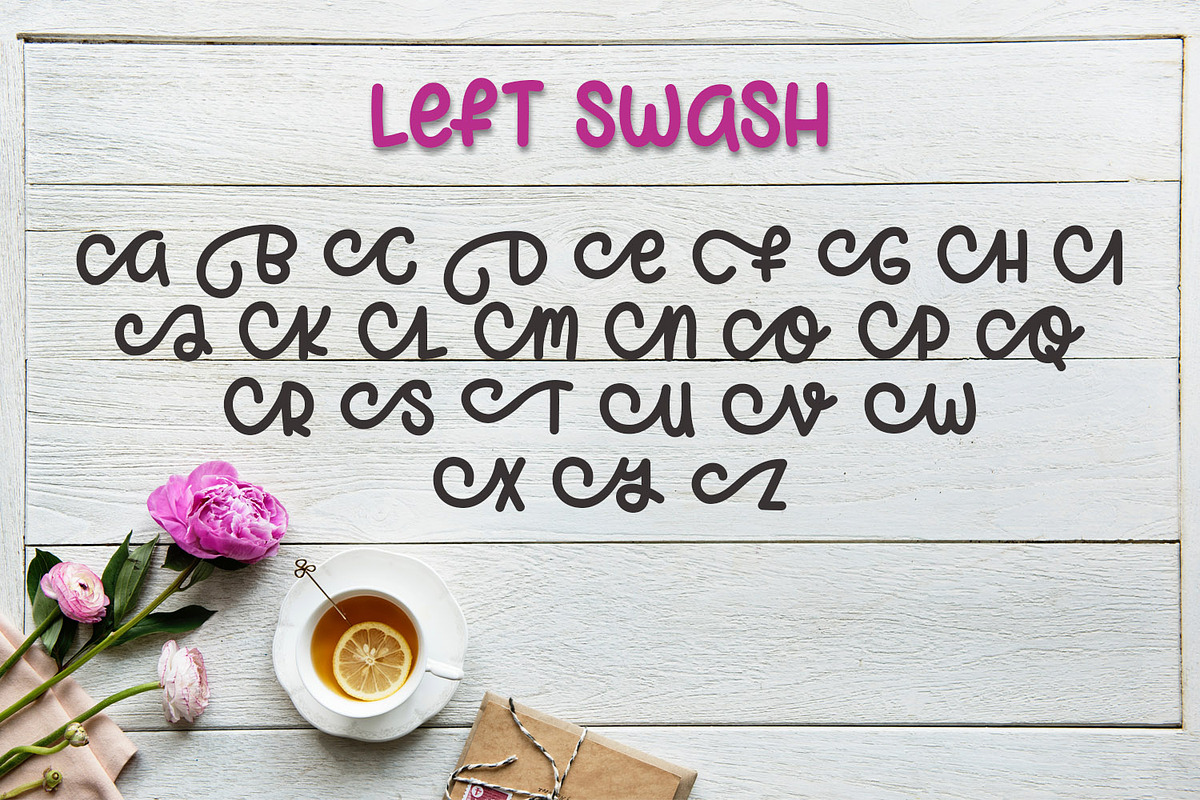 Left Swash
A B C D E F G H I
J K L M N O P Q
R S T U V W
X Y Z